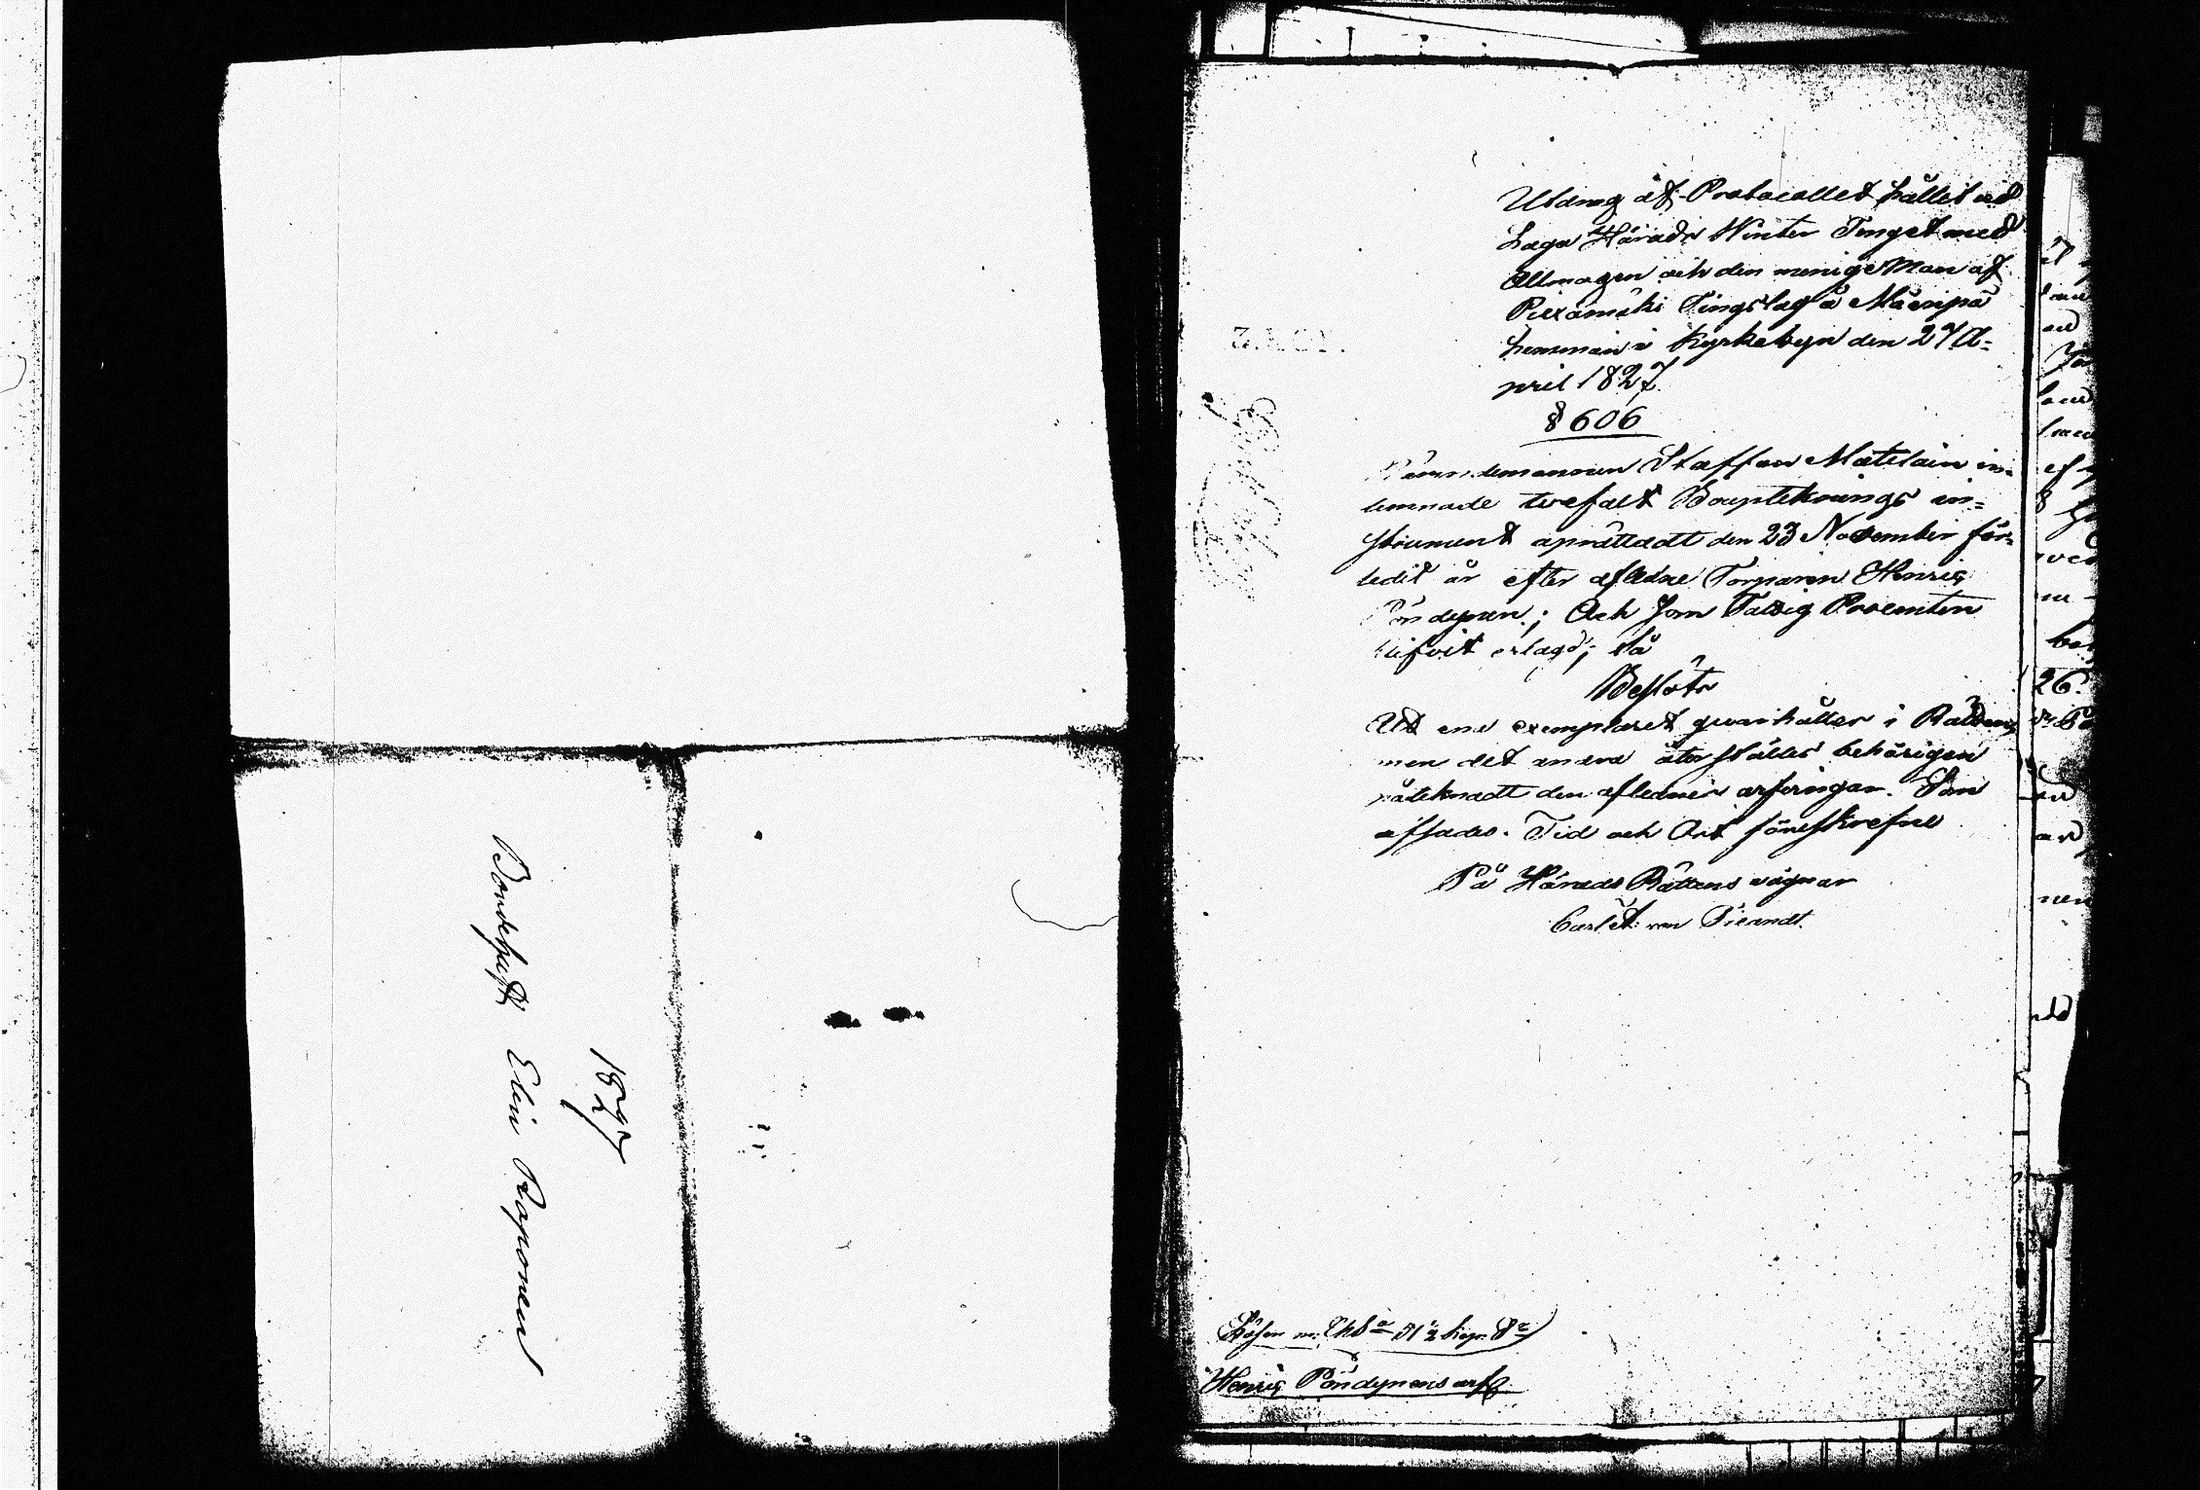 Bondehust: Elin Raponen
1827
Utdrag af Protocollet hållet vid
Laga Härads Winter Tinget med
Allmogen och den menige Man af
Piexämäki Tingslag å Mäenpä
hemman i Kyrkobyn den 27 A=
pril 1827.
§ 606
Nämndemannen Staffan Matilain in=
lemnade tvefalt Boupteknings in=
strument uprättadt den 23 November för=
ledit år efter aflidne Torparen Henric
Pöndynen; Och som Fattig Procenten
blifvit erlagd; Så
Beslöts
At ena exemplaret qvarhålles i Rätten,
men det andra återställes behörigen
påteknadt den aflednes arfvingar. Som
afsades. Tid och Ort föreskrefne
På Härads Rättens vägnar
Carl
Lösen
Henric Pöndynens arf